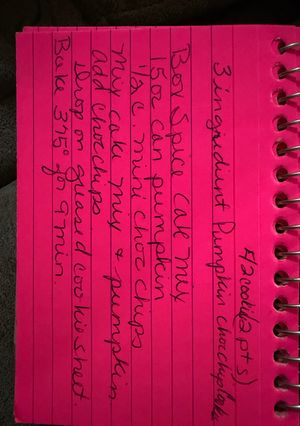 42 cookies (2 pts)
3 ingredient Pumpkin chocchip
Box Spice Cake mix
15 oz can pumpkin
1/2 c. mini choc chips
Mix cake mix & pumpkin
add choc chips
Drop on greased cookie sheet.
Bake 375° for 9 min.